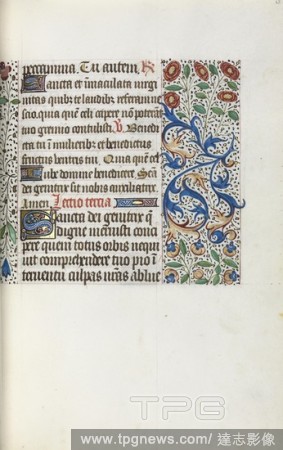 peccamina. Tu autem. R
Sancta et immaculata virgi
nitas quibz te laudibz referamus
nescio. quia quem celi capere non poterāt
tuo gremio contulisti. V. Bened
icta tu in mulieribz et benedictus
fructus ventris tui. Quia quem
Iube domine benedicere. Scā
dei genitrix sit nobis auxiliatrix.
Amen. Lectio tercia
Sancta dei genitrix q̄
digne meruisti conci
pere quem totus orbis nequi
uit comprehendere tuo pio in
teruentu culpas nr̄as ablue
TPG
www.tpgnews.com/達志影像